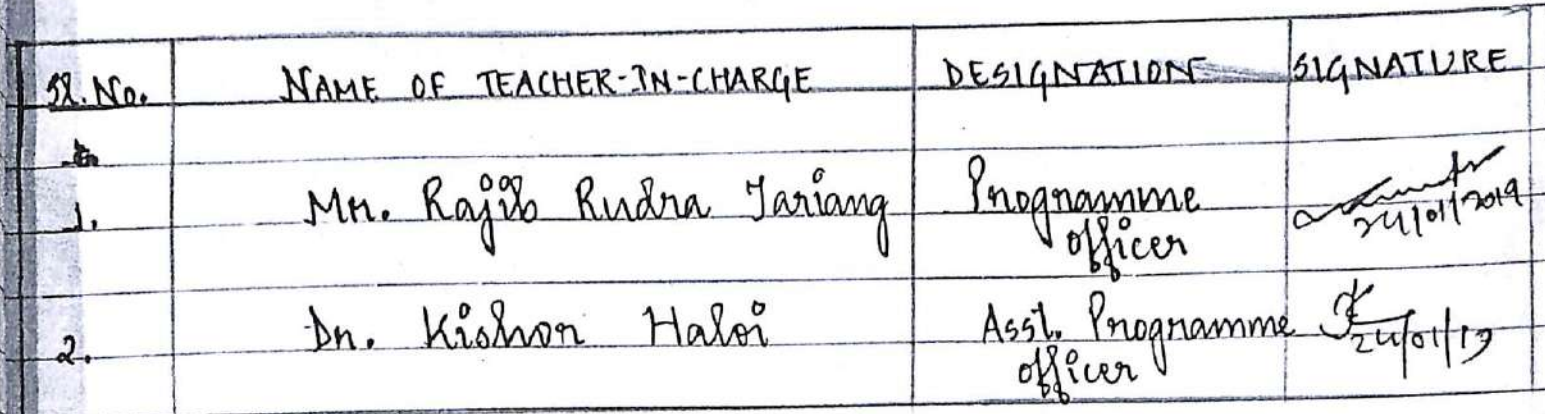 Sl. No. NAME OF TEACHER-IN-CHARGE DESIGNATION SIGNATURE
1. Mr. Rajib Rudra Tariang Programme
officer 24/01/2019
2. Dr. Kishor Haloi Asst. Programme 24/01/19
officer